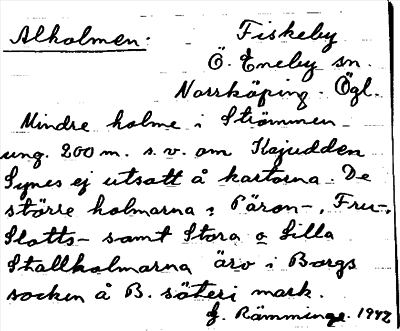 Alholmen: Fiskeby
Ö. Eneby sn.
Norrköping. Ögl.
Mindre holme i Strömmen
ung. 200 m. s. v. om Kajudden
Synes ej utsatt å kartorna. De
större holmarna: Päron-, Fru-,
Slotts- samt Stora o Lilla
Stallholmarna äro i Borgs
socken å B. säteri mark.
G. Rämminge. 1942